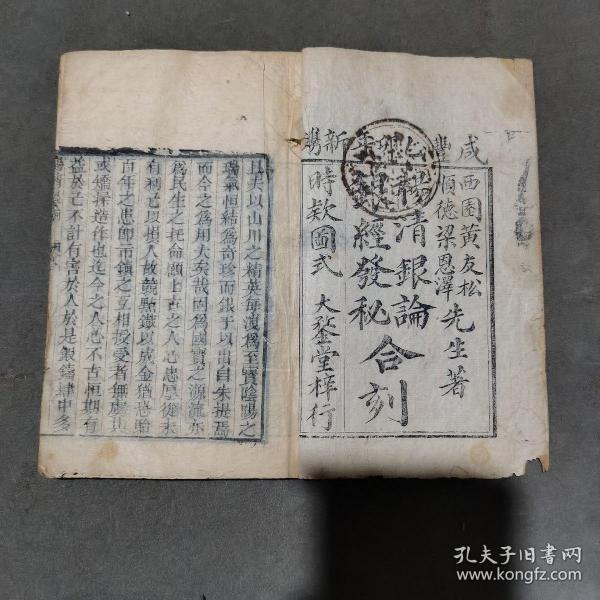 咸豐
年新鐫
西園黃友松
順德梁恩澤
先生著
清銀論
銀經發秘
合刻
時款圖式 大鋆堂梓行
且夫以山川之精英每洩為至寶陰陽之
瑞氣恒結為奇珍而銀于以出自朱提焉
而今之為用大矣哉固為國寶之源流亦
為民生之托命顧上古之人心忠厚從未
有利己以損人故鐃點鐵以成金猶恐貽
百年之患即市鎮之互相授受者無虞其
或矯揉造作也迄今之人心不古恒期有
益於己不計有害於人於是銀鑄肆中多
孔夫子旧书网
www.kongfz.com